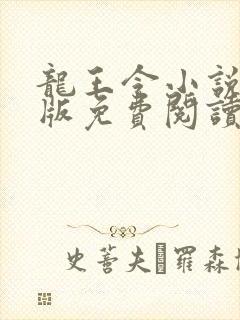 龍王令小說
版免費閱讀
史蒂夫羅森